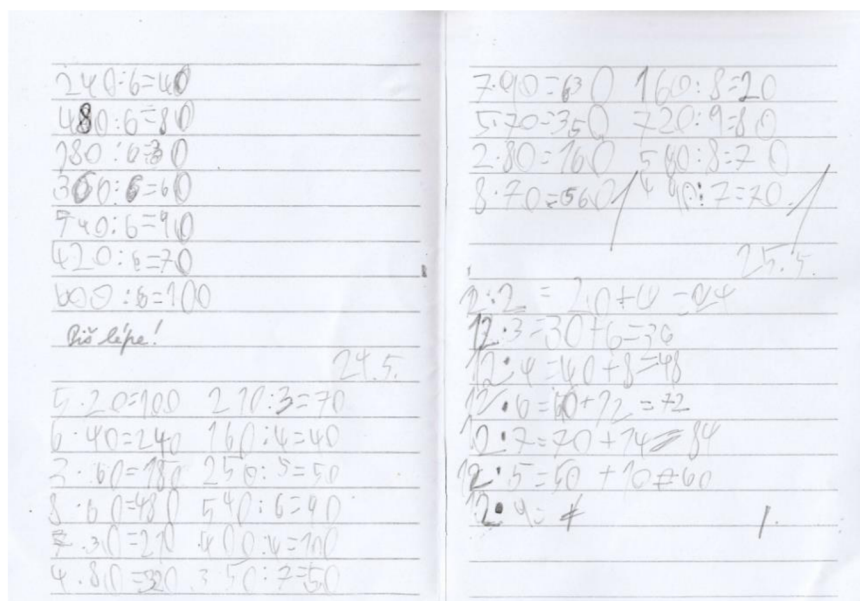 240:6=40
480:6=80
180:6=30
360:6=60
540:6=90
420:6=70
600:6=100
Piš lépe!
24.5.
5·20=100 210:3=70
6·40=240 160:4=40
3·60=180 250:5=50
8·60=480 540:6=90
7·30=210 400:4=100
4·80=320 350:7=50
7·90=630 160:8=20
5·70=350 720:9=80
2·80=160 560:8=70
8·70=560 490:7=70
25.5.
12·3=30+6=36
12·4=40+8=48
12·6=60+12=72
12·7=70+14=84
12·5=50+10=60
12·9=